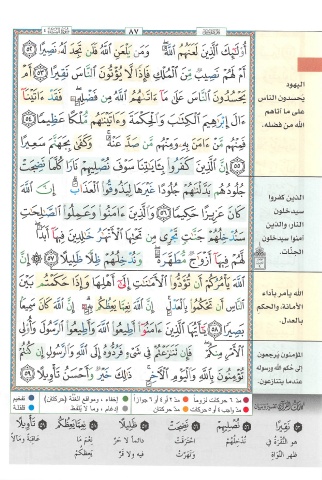 ٨٧
أُو۟لَـٰٓئِكَ ٱلَّذِينَ لَعَنَهُمُ ٱللَّهُ ۖ وَمَن يَلْعَنِ ٱللَّهُ فَلَن تَجِدَ لَهُۥ نَصِيرًا ٥٢
أَمْ لَهُمْ نَصِيبٌ مِّنَ ٱلْمُلْكِ فَإِذًا لَّا يُؤْتُونَ ٱلنَّاسَ نَقِيرًا ٥٣ أَمْ
يَحْسُدُونَ ٱلنَّاسَ عَلَىٰ مَآ ءَاتَىٰهُمُ ٱللَّهُ مِن فَضْلِهِۦ ۖ فَقَدْ ءَاتَيْنَآ
ءَالَ إِبْرَٰهِيمَ ٱلْكِتَـٰبَ وَٱلْحِكْمَةَ وَءَاتَيْنَـٰهُم مُّلْكًا عَظِيمًا ٥٤
فَمِنْهُم مَّنْ ءَامَنَ بِهِۦ وَمِنْهُم مَّن صَدَّ عَنْهُ ۚ وَكَفَىٰ بِجَهَنَّمَ سَعِيرًا
٥٥ إِنَّ ٱلَّذِينَ كَفَرُوا۟ بِـَٔايَـٰتِنَا سَوْفَ نُصْلِيهِمْ نَارًا كُلَّمَا نَضِجَتْ
جُلُودُهُم بَدَّلْنَـٰهُمْ جُلُودًا غَيْرَهَا لِيَذُوقُوا۟ ٱلْعَذَابَ ۗ إِنَّ ٱللَّهَ
كَانَ عَزِيزًا حَكِيمًا ٥٦ وَٱلَّذِينَ ءَامَنُوا۟ وَعَمِلُوا۟ ٱلصَّـٰلِحَـٰتِ
سَنُدْخِلُهُمْ جَنَّـٰتٍ تَجْرِى مِن تَحْتِهَا ٱلْأَنْهَـٰرُ خَـٰلِدِينَ فِيهَآ أَبَدًا ۖ
لَّهُمْ فِيهَآ أَزْوَٰجٌ مُّطَهَّرَةٌ ۖ وَنُدْخِلُهُمْ ظِلًّا ظَلِيلًا ٥٧ إِنَّ
ٱللَّهَ يَأْمُرُكُمْ أَن تُؤَدُّوا۟ ٱلْأَمَـٰنَـٰتِ إِلَىٰٓ أَهْلِهَا وَإِذَا حَكَمْتُم بَيْنَ
ٱلنَّاسِ أَن تَحْكُمُوا۟ بِٱلْعَدْلِ ۚ إِنَّ ٱللَّهَ نِعِمَّا يَعِظُكُم بِهِۦٓ ۗ إِنَّ ٱللَّهَ كَانَ سَمِيعًۢا
بَصِيرًا ٥٨ يَـٰٓأَيُّهَا ٱلَّذِينَ ءَامَنُوٓا۟ أَطِيعُوا۟ ٱللَّهَ وَأَطِيعُوا۟ ٱلرَّسُولَ وَأُو۟لِى
ٱلْأَمْرِ مِنكُمْ ۖ فَإِن تَنَـٰزَعْتُمْ فِى شَىْءٍ فَرُدُّوهُ إِلَى ٱللَّهِ وَٱلرَّسُولِ إِن كُنتُمْ
تُؤْمِنُونَ بِٱللَّهِ وَٱلْيَوْمِ ٱلْـَٔاخِرِ ۚ ذَٰلِكَ خَيْرٌ وَأَحْسَنُ تَأْوِيلًا ٥٩
اليهود
يحسدون الناس
على ما آتاهم
الله من فضله.
الذين كفروا
سيدخلون
النار، والذين
آمنوا سيدخلون
الجنّات.
الله يأمر بأداء
الأمانات والحكم
بالعدل.
المؤمنون يرجعون
إلى حكم الله ورسوله
عندما يتنازعون.
مدّ ٦ حركات لزوماً
مدّ ٢ أو ٤ أو ٦ جوازاً
إخفاء، ومواقع الغنّة (حركتان)
تفخيم
مدّ حركتان
إدغام، وما لا يُلفظ
قلقلة
نَقِيرًا
نُصْلِيهِمْ
نَضِجَتْ
ظَلِيلًا
نِعِمَّا يَعِظُكُم
تَأْوِيلًا
هو النُّقرة في
ظهر النواة
نُدخلهُم
احترقت
دائماً لا حرّ
فيه ولا قرّ
نِعْمَ ما
عاقبة ومآلاً